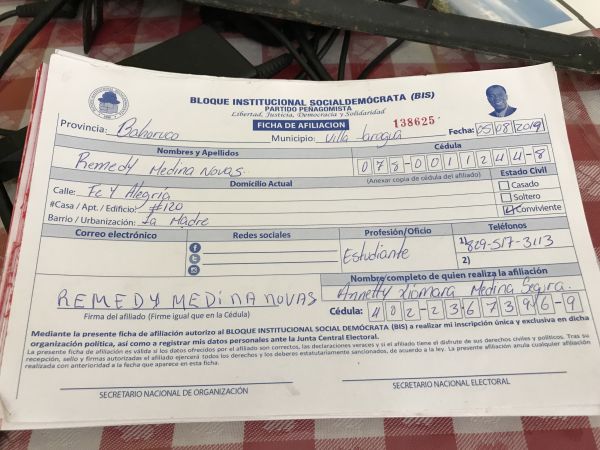 BLOQUE INSTITUCIONAL SOCIALDEMÓCRATA (BIS)
PARTIDO PEÑAGOMISTA
Libertad, Justicia, Democracia y Solidaridad
FICHA DE AFILIACION
138625
Provincia: Bahoruco Municipio: Villa Jaragua Fecha: 05/08/2019
Nombres y Apellidos Cédula
Remedy Medina Novas 078-0011244-8
(Anexar copia de cédula del afiliado)
Domicilio Actual Estado Civil
Calle: Fe Y Alegría Casado
#Casa / Apt. / Edificio: #120 Soltero
Barrio / Urbanización: La Madre Conviviente
Correo electrónico Redes sociales Profesión/Oficio Teléfonos
Estudiante 1) 829-517-3113
2)
Nombre/completo de quien realiza la afiliación
REMEDY MEDINA NOVAS Annetty Xiomara Medina Segura.
Firma del afiliado (Firme igual que en la Cédula) Cédula: 402-2367396-9
Mediante la presente ficha de afiliación autorizo al BLOQUE INSTITUCIONAL SOCIAL DEMÓCRATA (BIS) a realizar mi inscripción única y exclusiva en dicha
organización política, así como a registrar mis datos personales ante la Junta Central Electoral.
La presente ficha de afiliación es válida si los datos ofrecidos por el afiliado son correctos, las declaraciones veraces y si el afiliado tiene el disfrute de sus derechos civiles y políticos. Tras su
recepción, sello y firmas autorizadas el afiliado ejercerá todos los derechos y los deberes estatutariamente sancionados, de acuerdo a la ley. La presente afiliación anula cualquier afiliación
realizada con anterioridad a la fecha que aparece en esta ficha.
SECRETARIO NACIONAL DE ORGANIZACIÓN SECRETARIO NACIONAL ELECTORAL